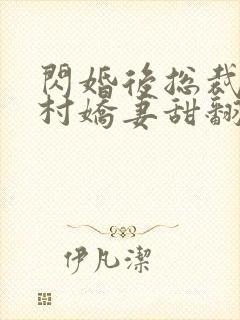 閃婚後总裁
村嬌妻甜翻
伊凡潔